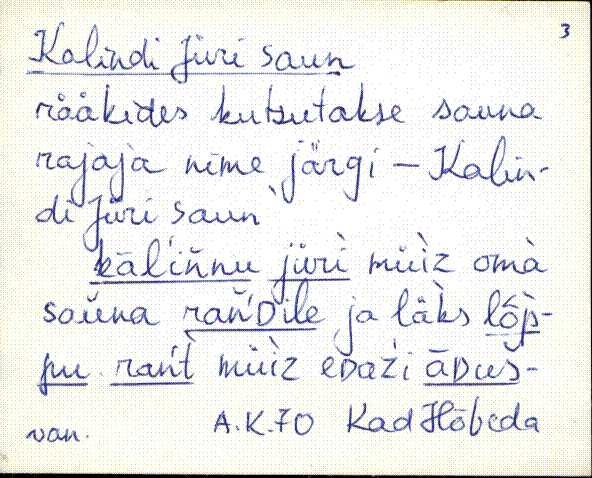 3
Kalindi Jüri saun
rääkides kutsutakse sauna
rajaja nime järgi – Kalin-
di Jüri saun
kāĺiňnu jüri müìz omà
saŭna rańDile ja läks lõp̀-
pu rańt müìz eDaźi āDuš-
van. A.K.70 Kad Hõbeda